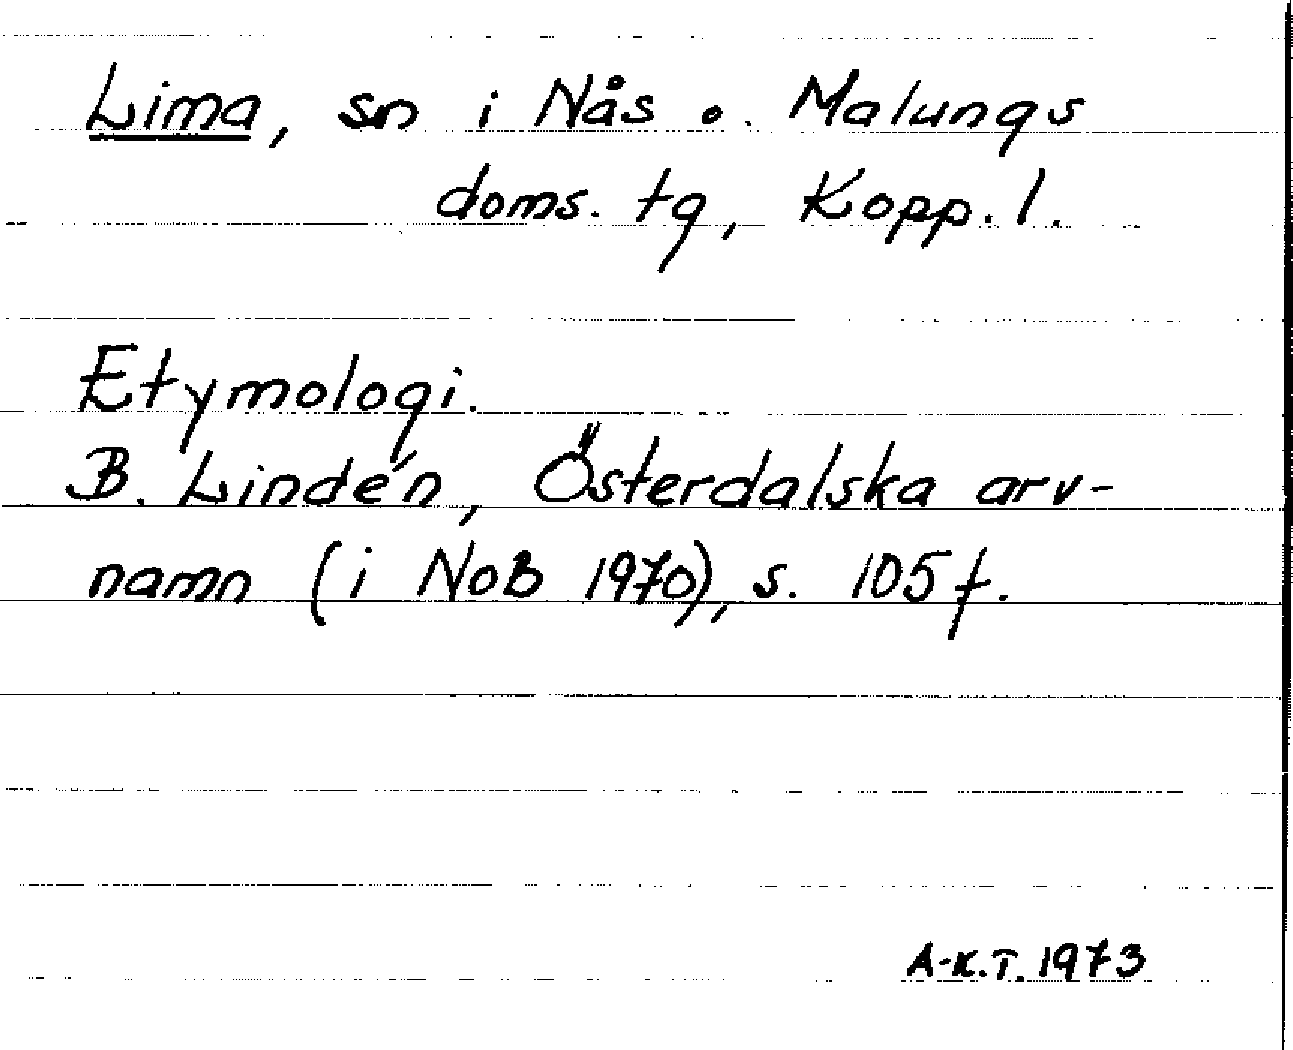 Lima, sn i Nås o. Malungs
doms. tg, Kopp. l.
Etymologi.
B. Lindén, Österdalska arv-
namn (i NoB 1970), s. 105 f.
A-K.T. 1973